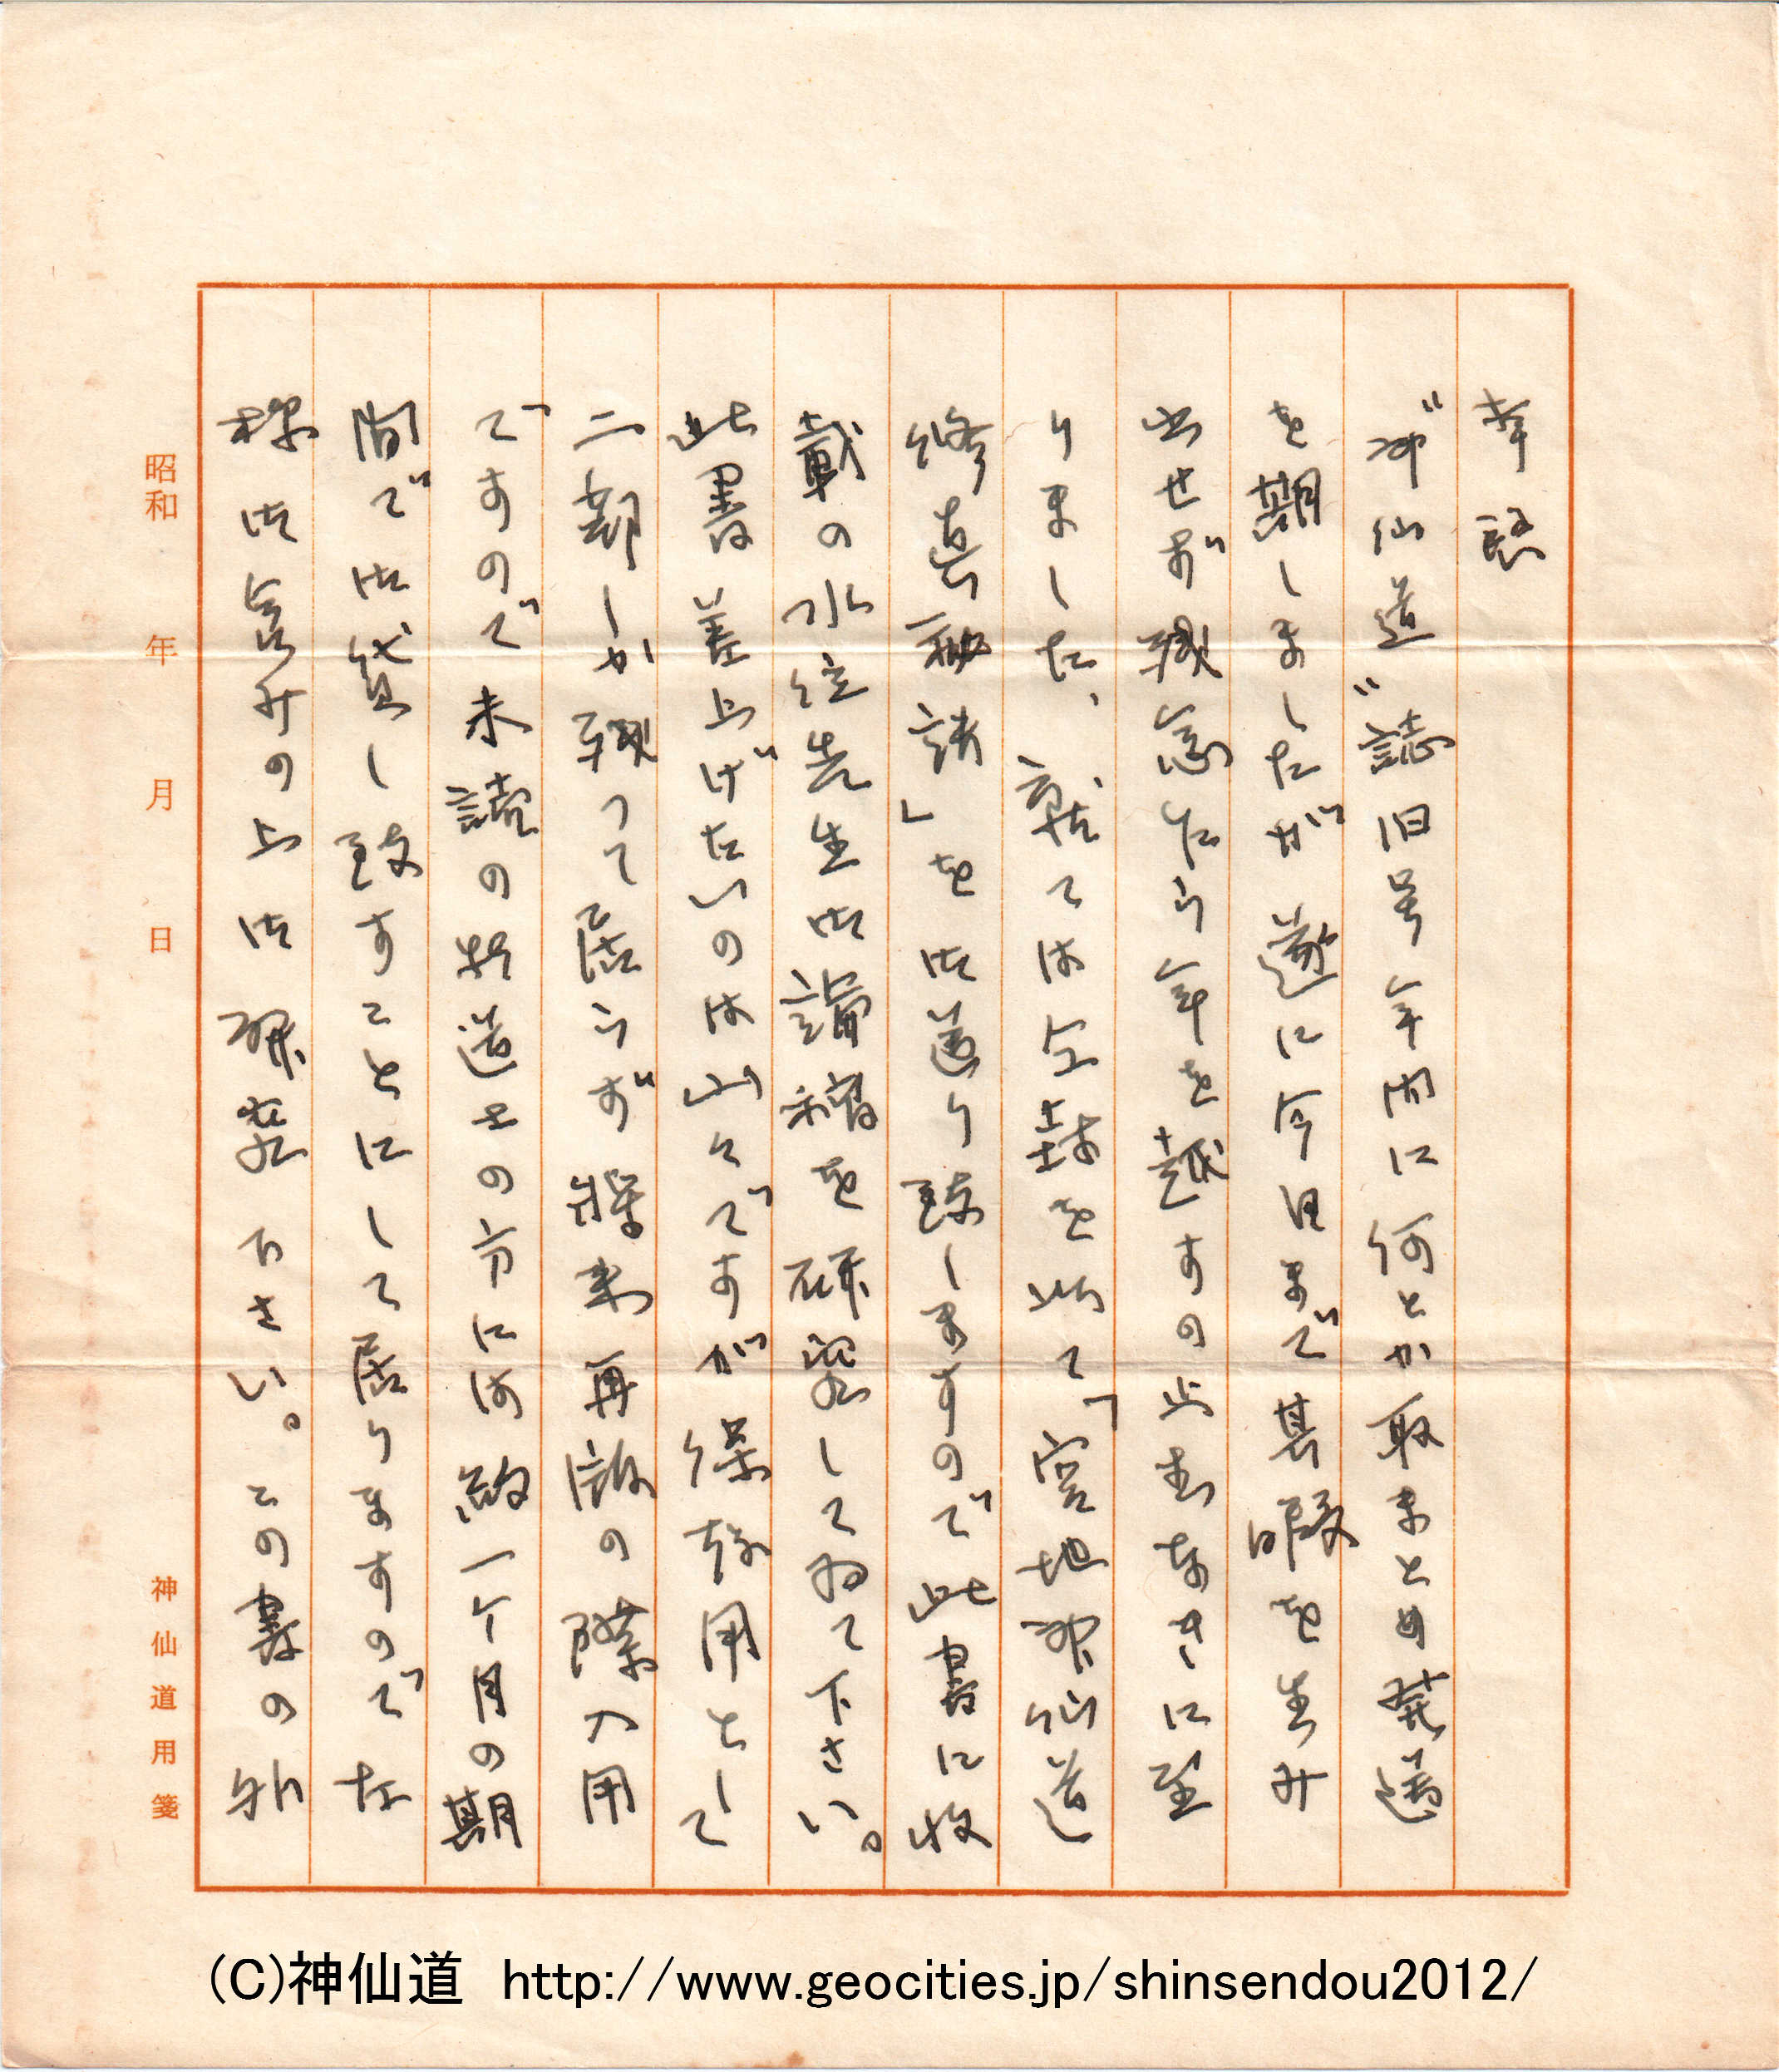 拝啓
"神仙道"誌旧号年内に何とか取まとめ発送
を期しましたが遂に今日まで其暇を生み
出せず残念乍ら年を越すの止むなきに至
りました、就ては小包を以て「宮地家仙道
修真秘訣」を御送り致しますので此書に収
載の水位先生御講稿を研究してゐて下さい。
此書差上げたいのは山々ですが保存用として
二部しか残って居らず将来再版の際入用
ですので未読の新道士の方には約一ケ月の期
間で御貸し致すことにして居りますので左
様御含みの上御研究下さい。この書の外
昭和 年 月 日
神仙道用箋
(C)神仙道 http://www.geocities.jp/shinsendou2012/